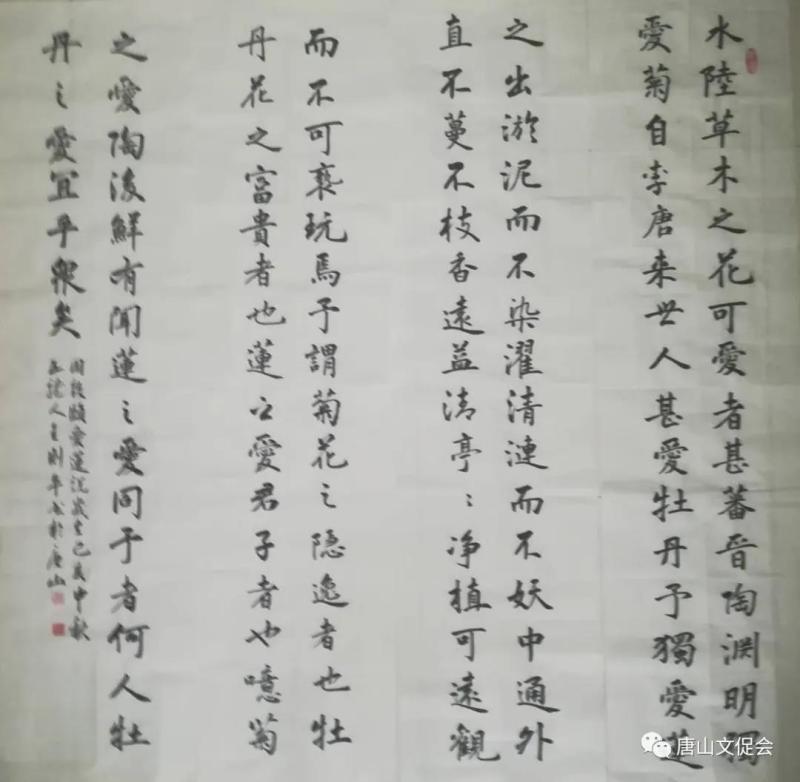 水陸草木之花可愛者甚蕃晉陶渊明獨
愛菊自李唐来世人甚愛牡丹予獨愛蓮
之出淤泥而不染濯清漣而不妖中通外
直不蔓不枝香遠益清亭〻净植可遠觀
而不可亵玩焉予謂菊花之隐逸者也牡
丹花之富貴者也蓮之愛君子者也噫菊
之愛陶後鮮有闻蓮之愛同于者何人牡
丹之愛宜乎眾矣
周敦頤愛蓮説歲在己亥中秋
刚平书於唐山
唐山文促会